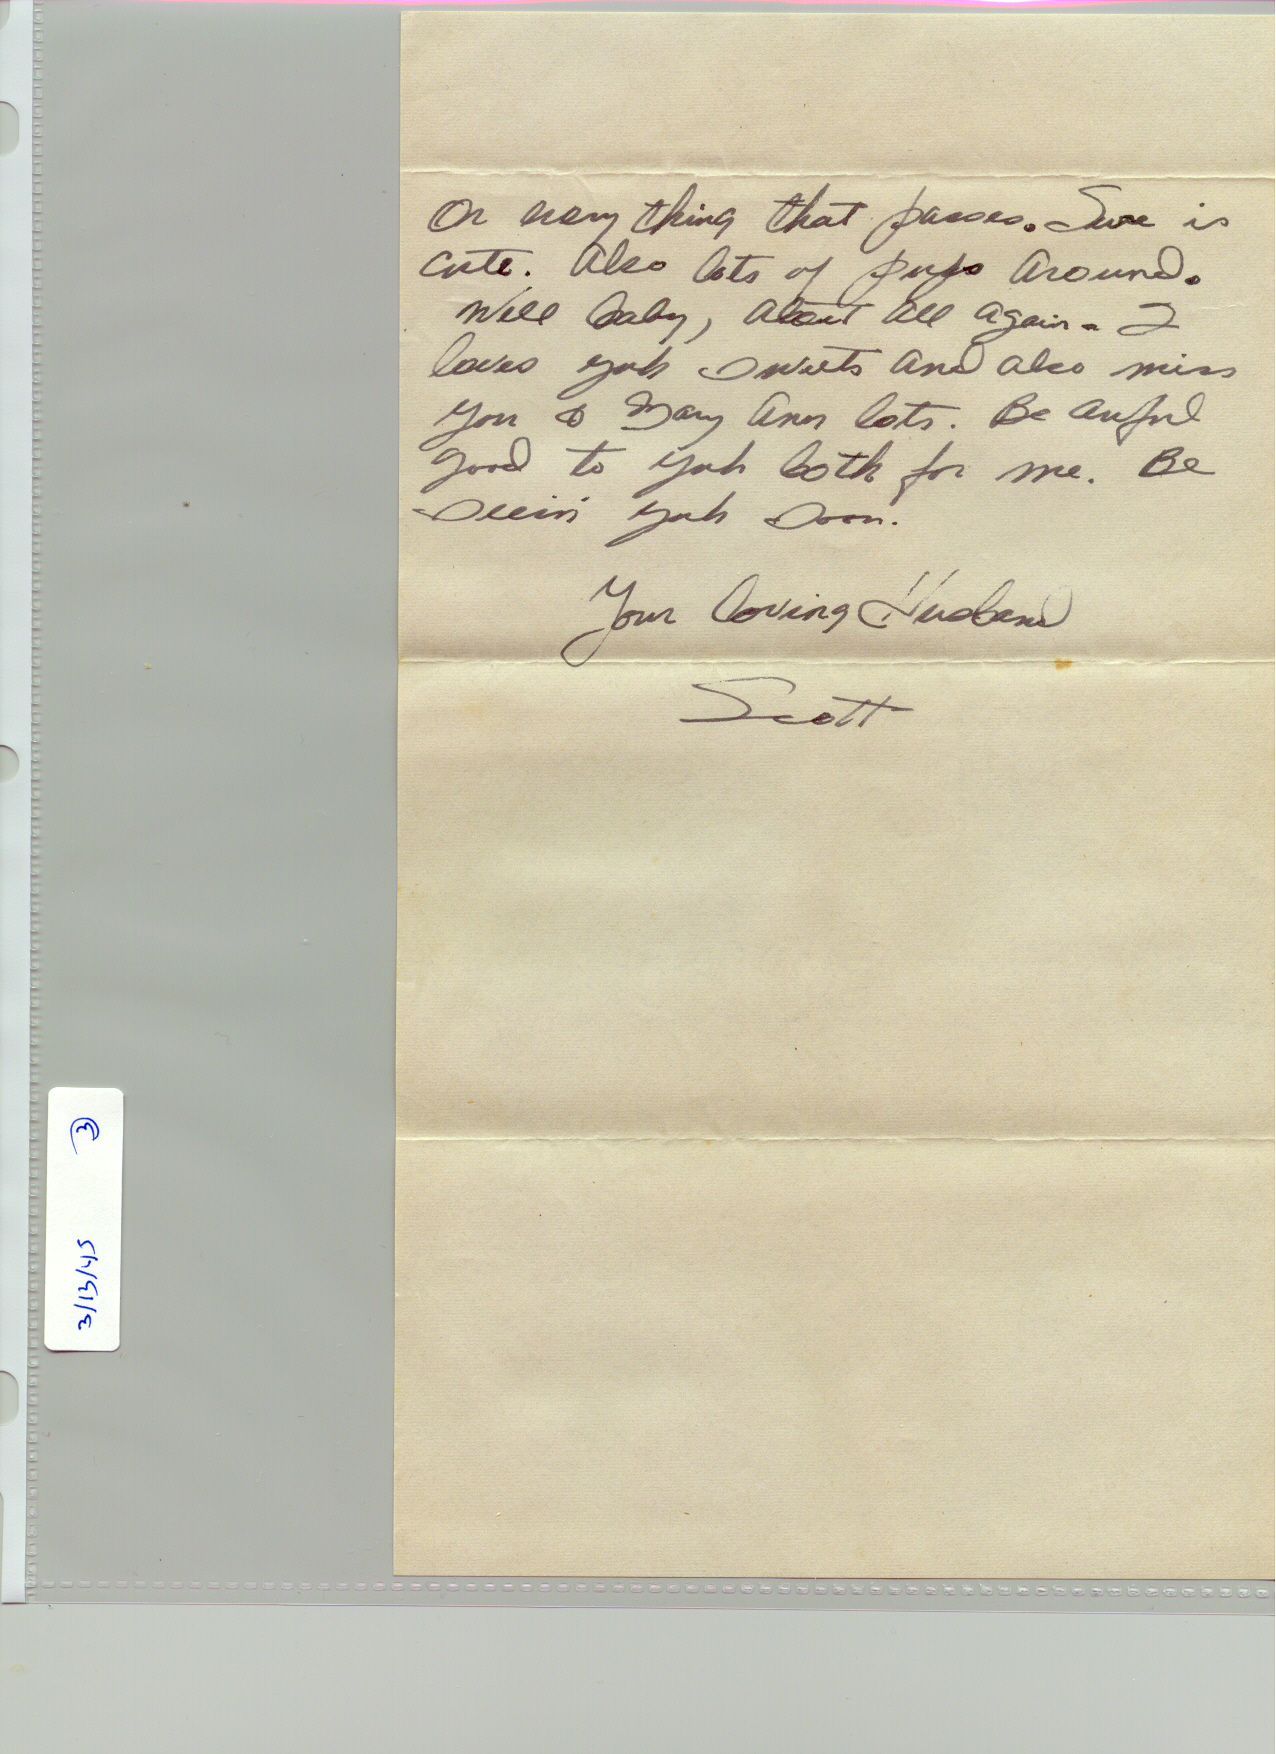 On every thing that passes. Sure is
cute. Also lots of pups around.
Well baby, about all again. I
loves yuh sweets and also miss
you & Mary Ann lots. Be awful
good to yuh both for me. Be
seein' yuh soon.
Your loving Husband
Scott
3/13/45 3